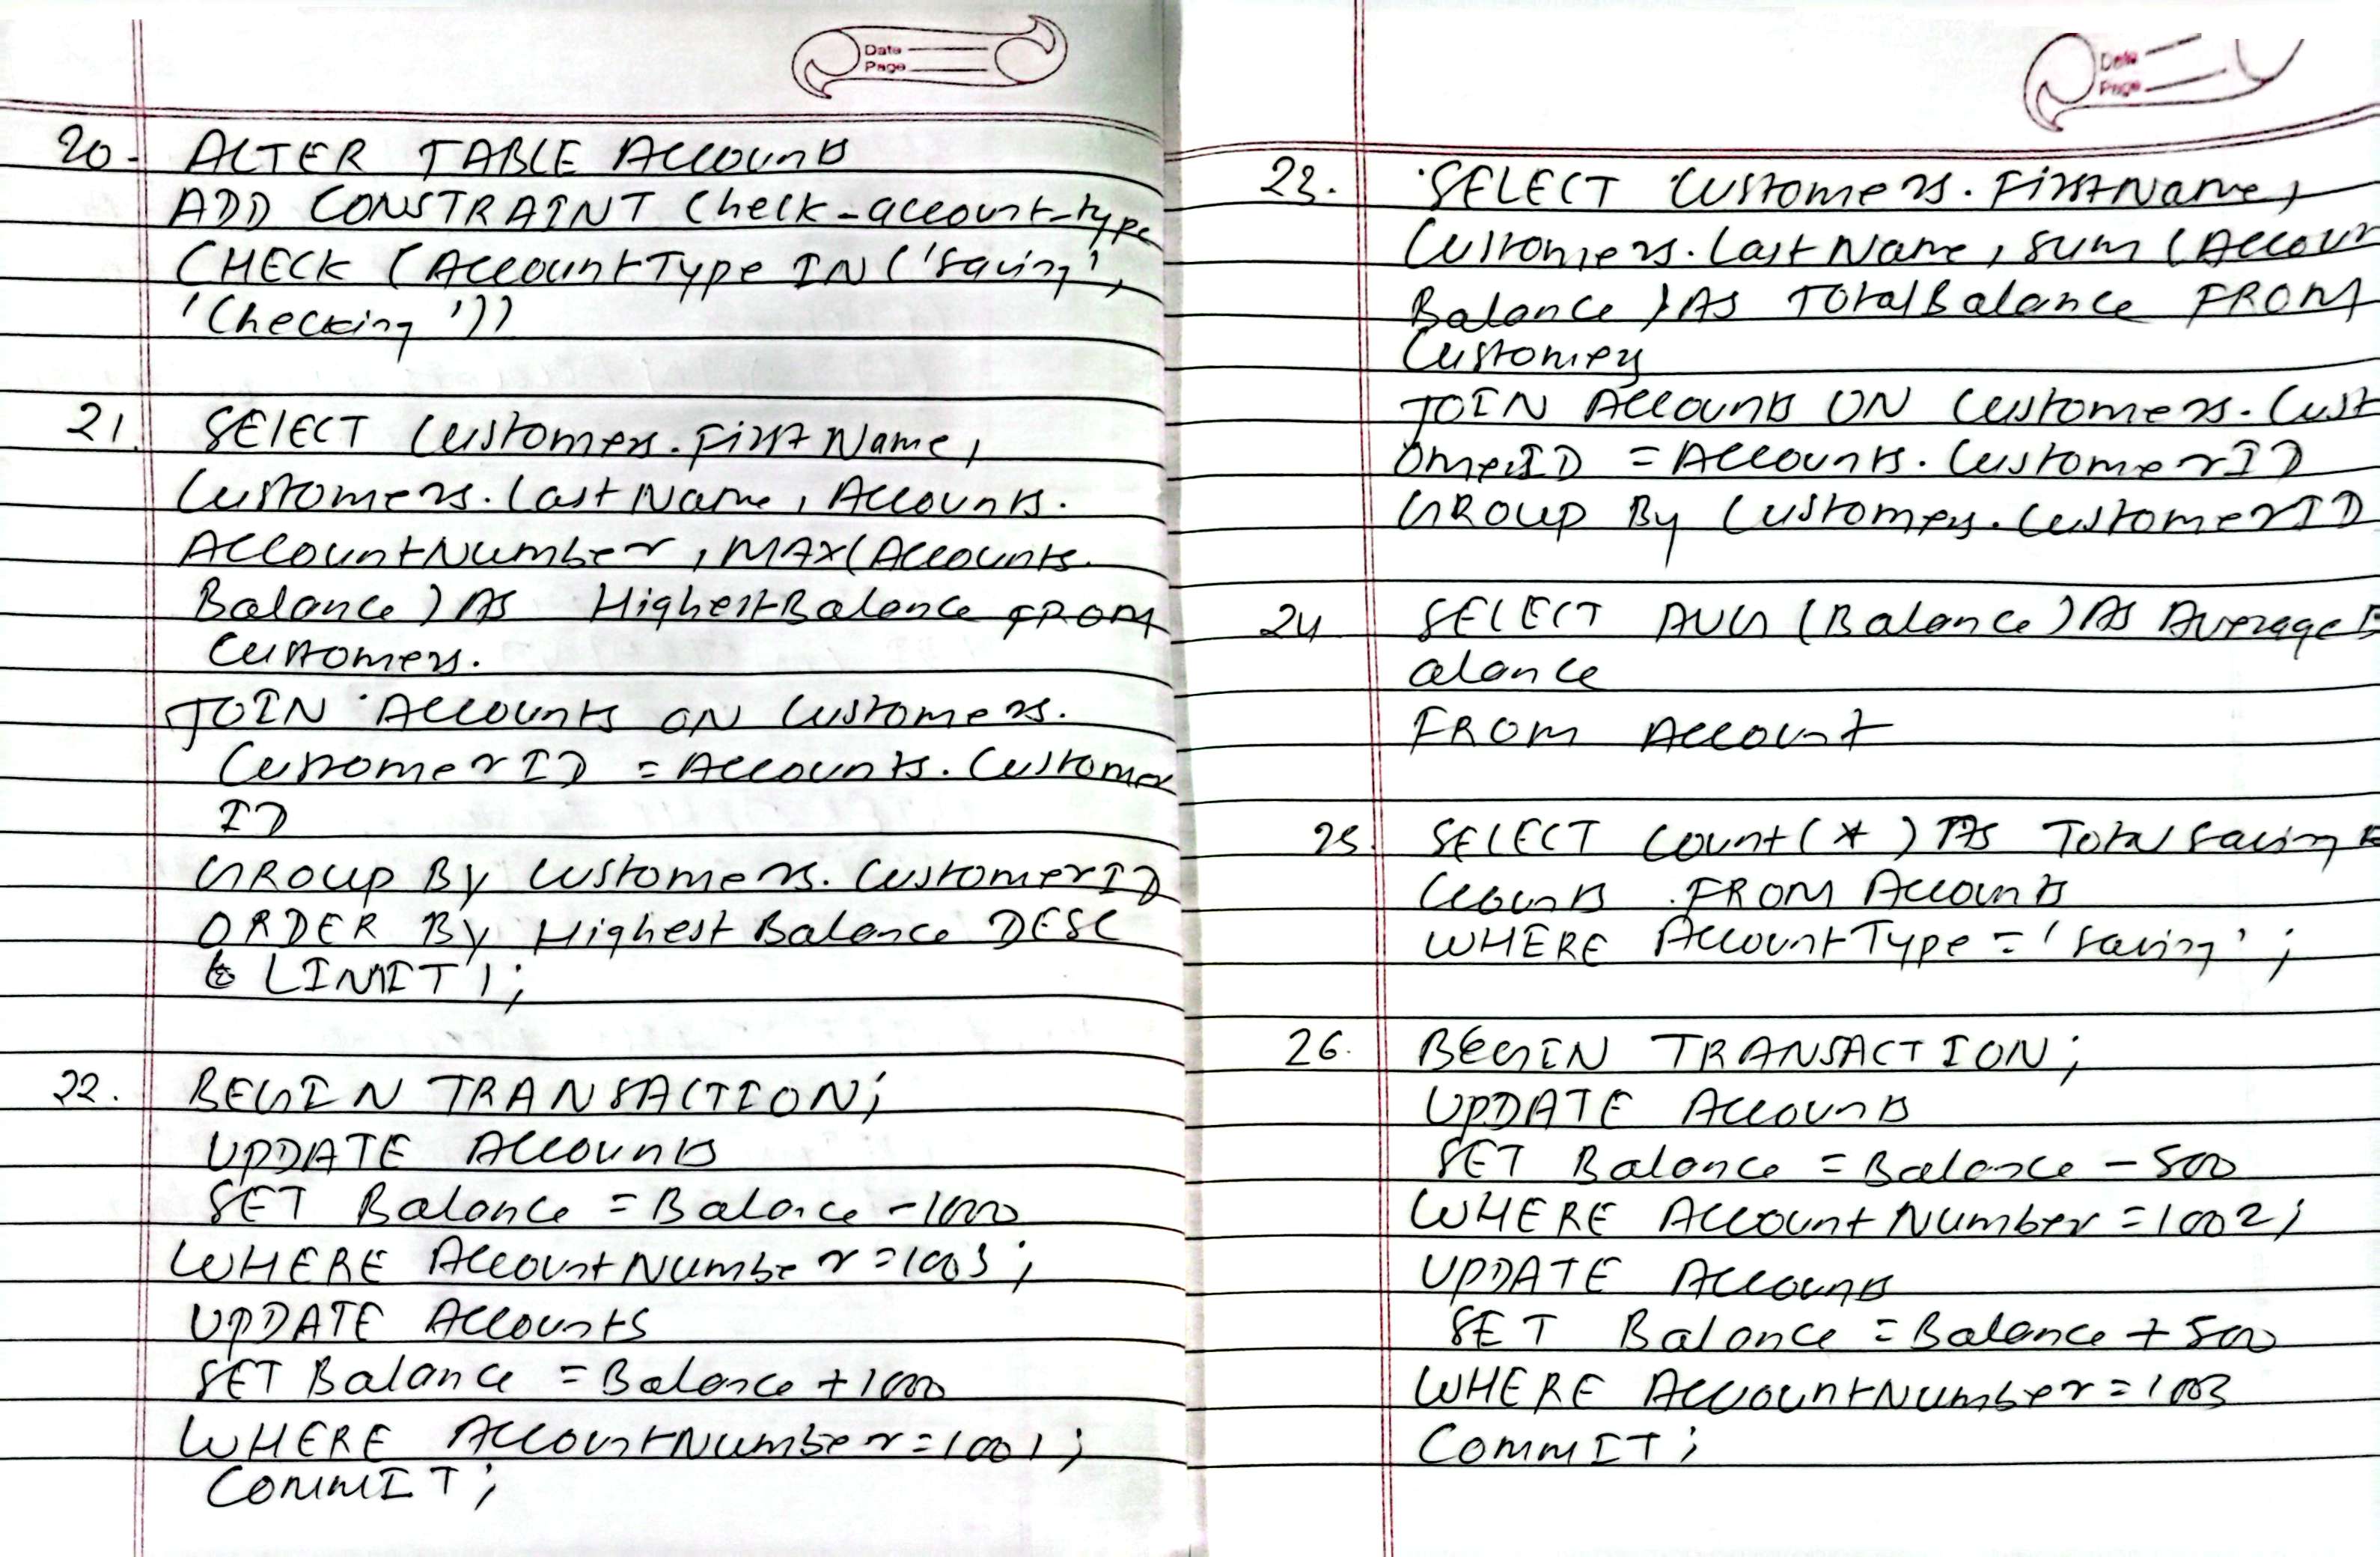 Date
Page
20- ALTER TABLE Accounts
ADD CONSTRAINT Check-account-type
CHECK (AccountType IN ('saving',
'Checking'))
21. SELECT Customers.FirstName,
Customers.LastName, Accounts.
AccountNumber, MAX(Accounts.
Balance) AS HighestBalance FROM
Customers.
JOIN Accounts ON Customers.
CustomerID = Accounts.Customer
ID
GROUP By Customers.CustomerID
ORDER By HighestBalance DESC
LIMIT 1;
22. BEGIN TRANSACTION;
UPDATE Accounts
SET Balance = Balance - 1000
WHERE AccountNumber = 1003;
UPDATE Accounts
SET Balance = Balance + 1000
WHERE AccountNumber = 1001;
COMMIT;
Date
Page
23. SELECT Customers.FirstName,
Customers.LastName, SUM (Accoun
Balance) AS TotalBalance FROM
Customers
JOIN Accounts ON Customers.Cust
omerID = Accounts.CustomerID
GROUP By Customers.CustomerID
24 SELECT AVG (Balance) AS AverageB
alance
FROM Account
25. SELECT Count(*) AS Total saving
ccounts FROM Accounts
WHERE AccountType = 'saving';
26. BEGIN TRANSACTION;
UPDATE Accounts
SET Balance = Balance - 500
WHERE AccountNumber = 1002;
UPDATE Accounts
SET Balance = Balance + 500
WHERE AccountNumber = 1003
COMMIT;